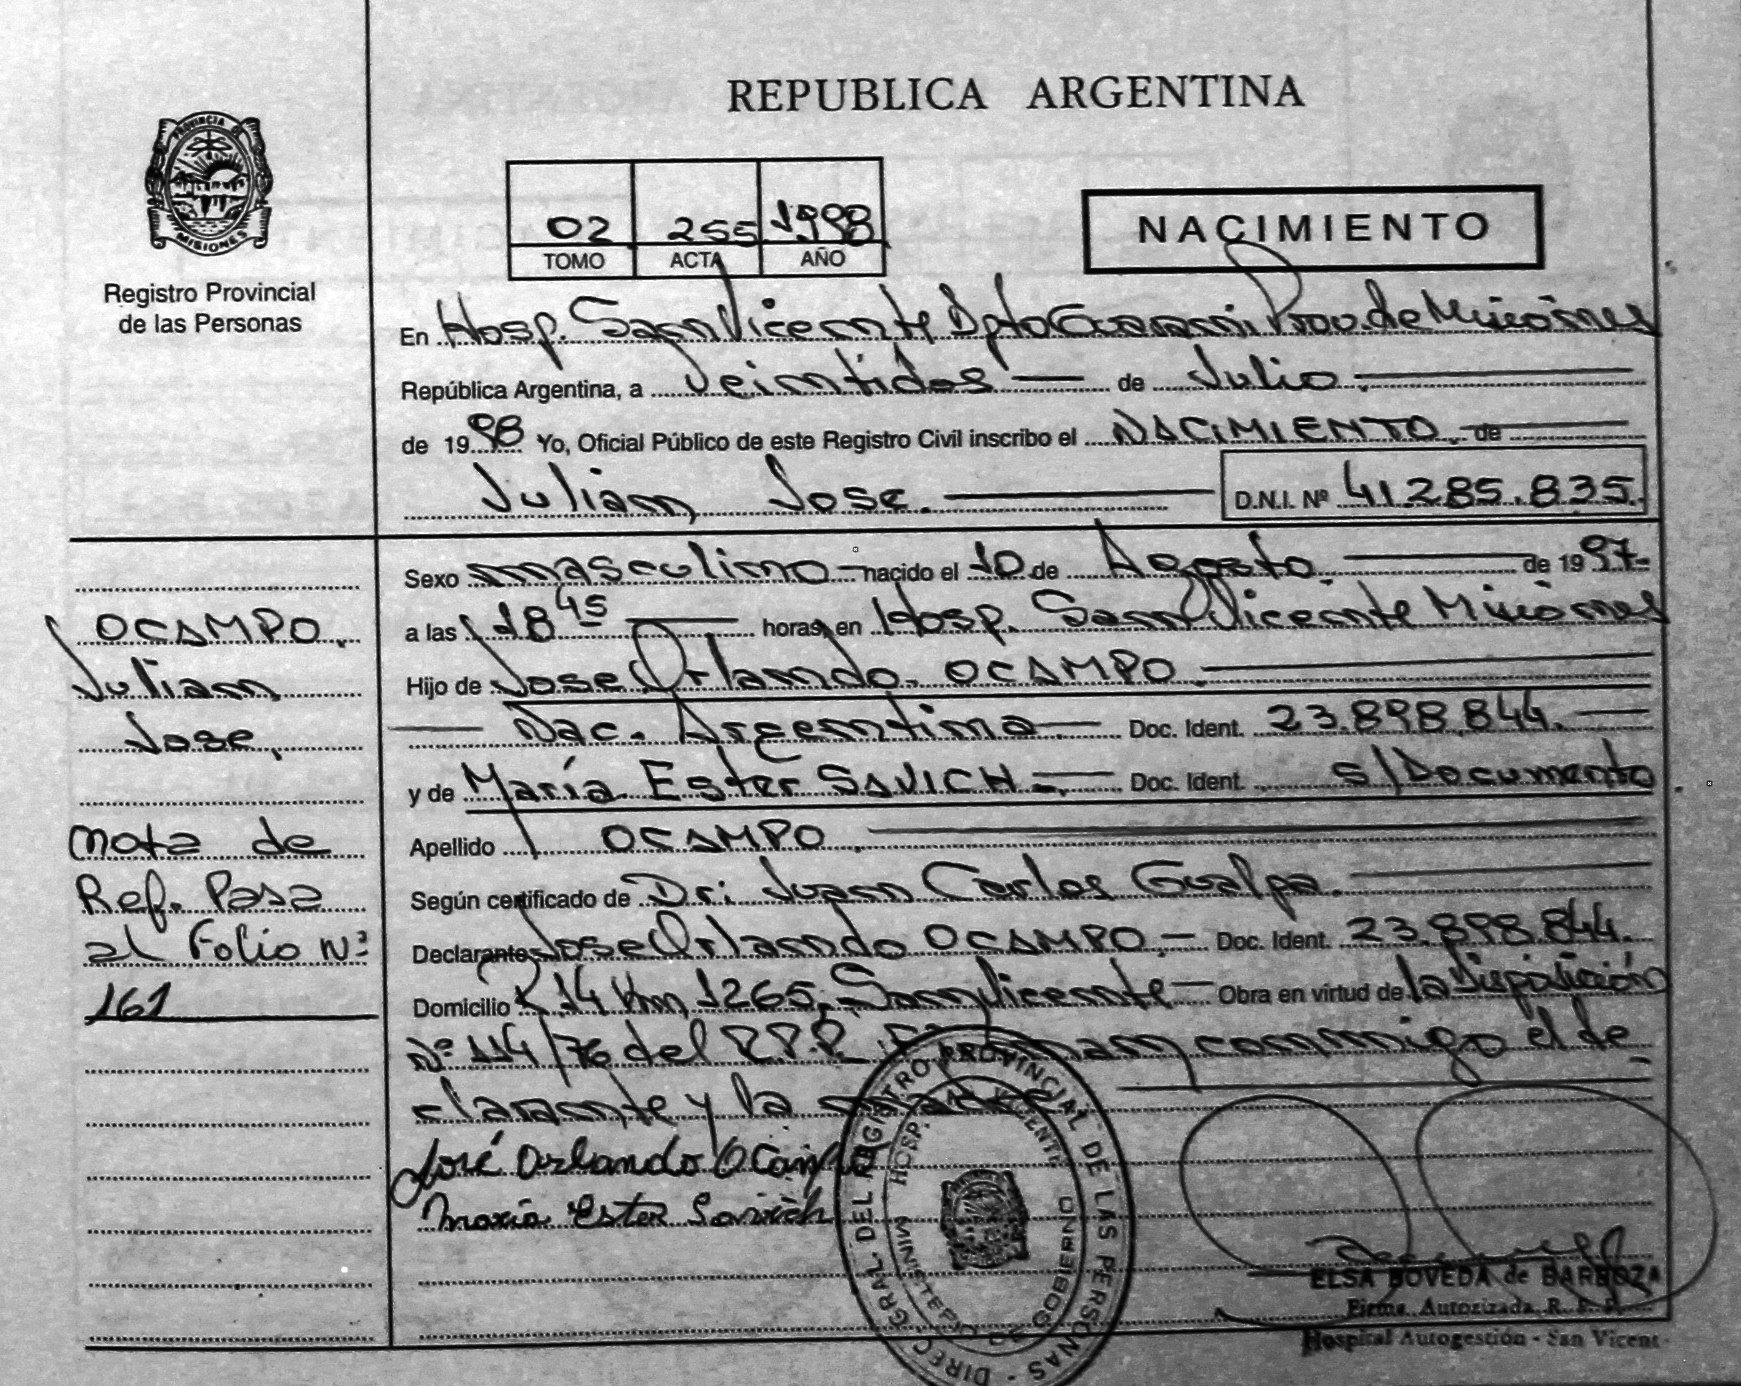 REPUBLICA ARGENTINA
PROVINCIA DE
MISIONES
Registro Provincial
de las Personas
02 255 1998
TOMO ACTA AÑO
NACIMIENTO
En Hosp. San Vicente Dpto Guarani Prov. de Misiones
República Argentina, a Veintidos de Julio.
de 1998 Yo, Oficial Público de este Registro Civil inscribo el NACIMIENTO. de
Julian Jose. D.N.I. Nº 41.285.835.
Sexo masculino nacido el 10 de Agosto. de 1997-
a las 18 45 horas, en Hosp. San Vicente Misiones
Hijo de Jose Orlando. OCAMPO.
Nac. Argentina Doc. Ident. 23.898.844.
y de María Ester SAVICH Doc. Ident. s/Documento
Apellido OCAMPO
Según certificado de Dr: Juan Carlos Gualpa.
Declarante Jose Orlando OCAMPO. Doc. Ident. 23.898.844.
Domicilio R 14 Km 1265, San Vicente Obra en virtud de la Disposición
Nº 114/76 del R.P.P. Firman conmigo el de-
clarante y la madre
José Orlando OCampo
María Ester Savich
OCAMPO.
Julian
Jose,
nota de
Ref. Pasa
al Folio Nº
161
DIREC. GRAL. DEL REGISTRO PROVINCIAL DE LAS PERSONAS
HOSP. SAN VICENTE
MINISTERIO DE GOBIERNO
ELSA BOVEDA de BARBOZA
Firma Autorizada R. P. P.
Hospital Autogestión - San Vicent